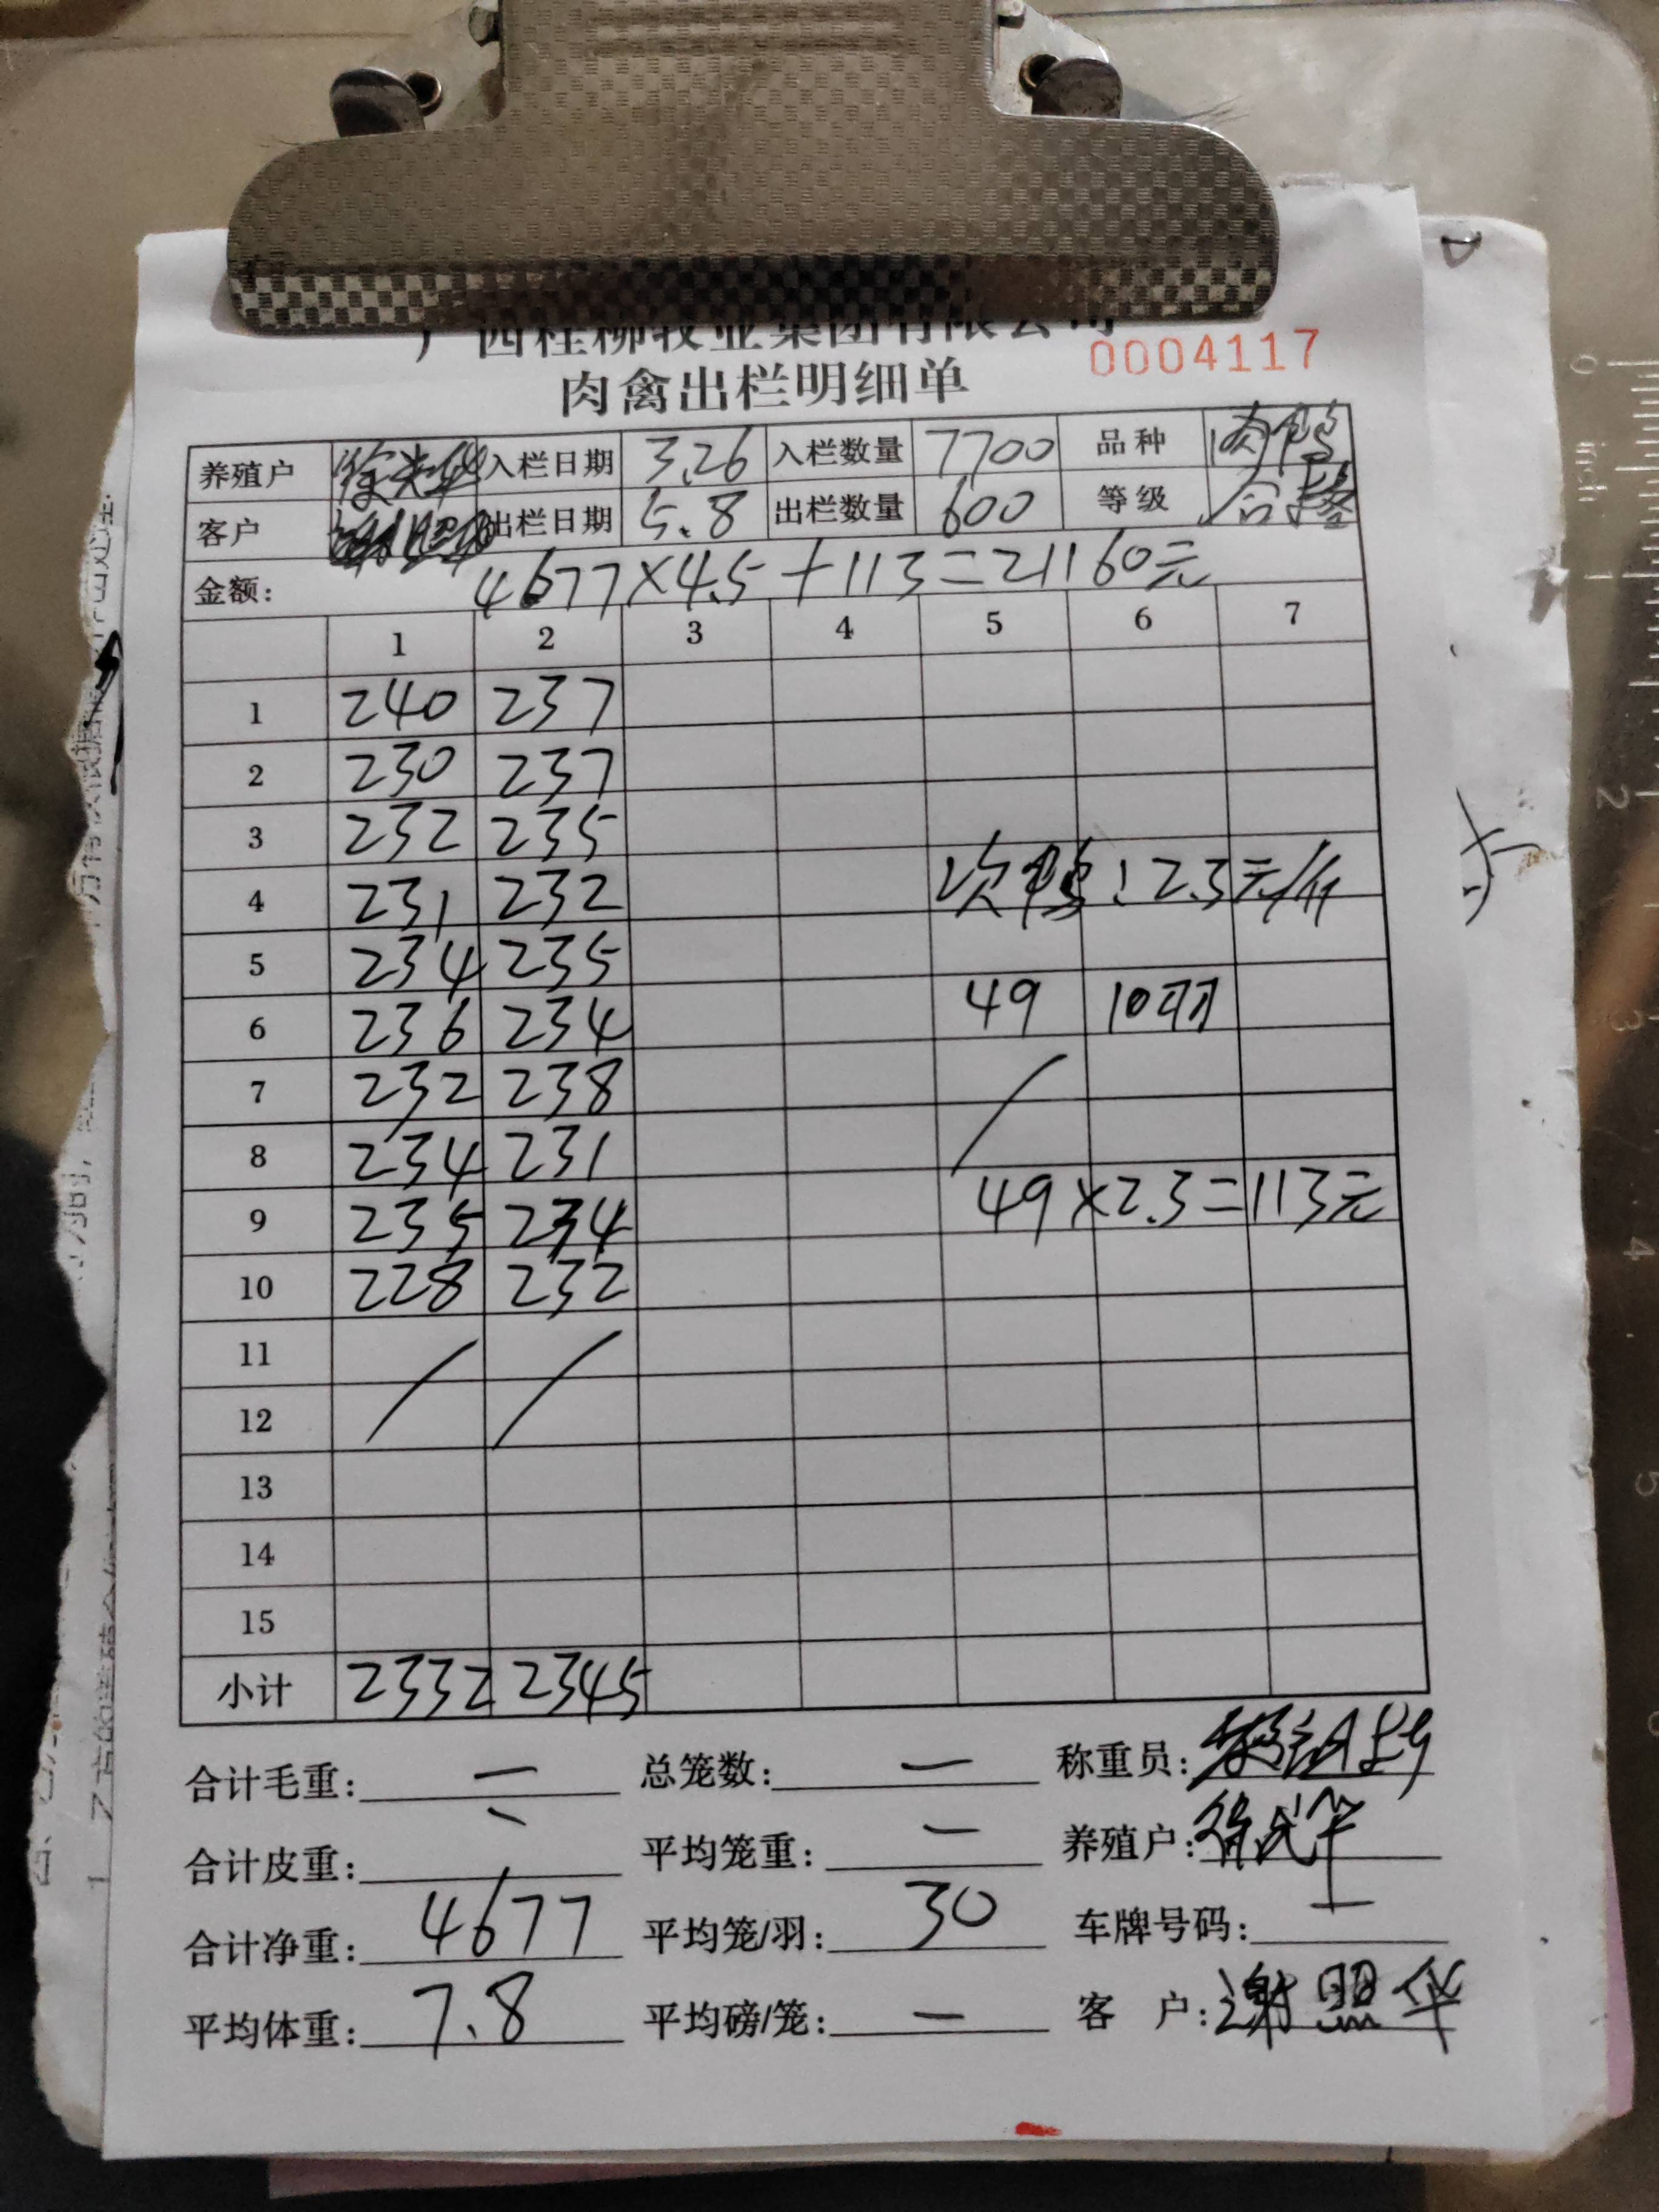 广西桂柳牧业集团有限公司
0004117
肉禽出栏明细单
养殖户 入栏日期 3.26 入栏数量 7700 品种 肉鸭
客户 出栏日期 5.8 出栏数量 600 等级 合格
金额: 4677×4.5+113=21160元
1 2 3 4 5 6 7
1 240 237
2 230 237
3 232 235
4 231 232 次鸭:2.3元/斤
5 234 235
6 236 234 49 10羽
7 232 238
8 234 231
9 235 234 49×2.3=113元
10 228 232
11
12
13
14
15
小计 2332 2345
合计毛重: — 总笼数: — 称重员:
合计皮重: 平均笼重: — 养殖户:
合计净重: 4677 平均笼/羽: 30 车牌号码: —
平均体重: 7.8 平均磅/笼: — 客 户: 谢照华
0
inch
1
2
3
4
5